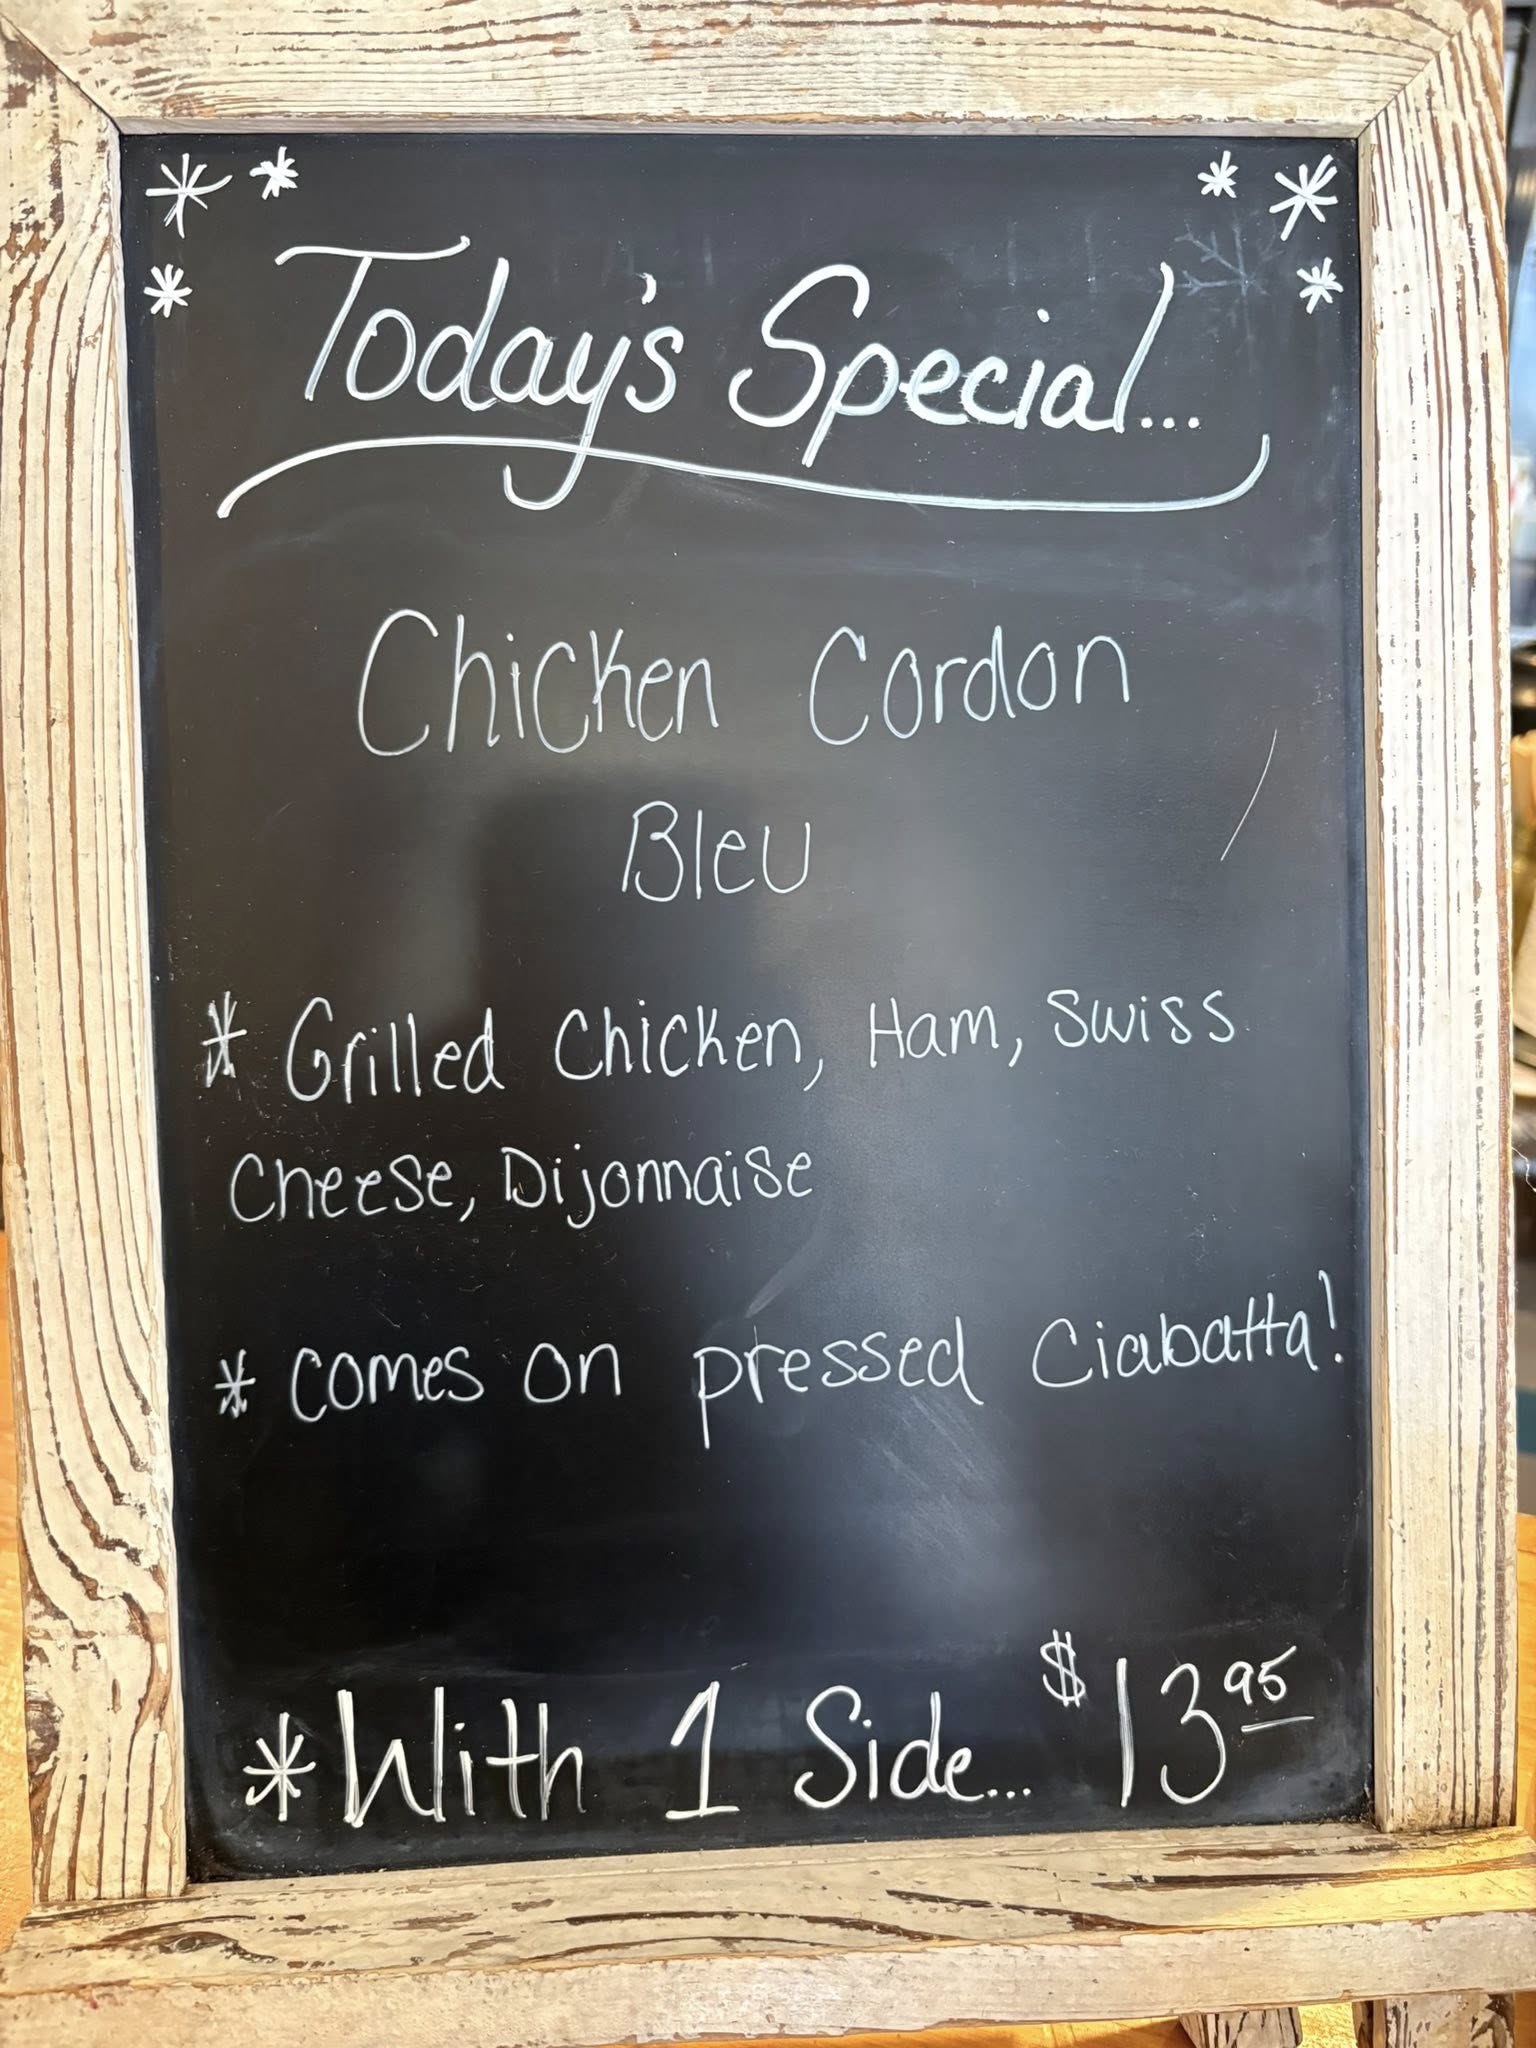 Today's Special...
Chicken Cordon
Bleu
* Grilled Chicken, Ham, Swiss
Cheese, Dijonnaise
* comes on pressed Ciabatta!
*With 1 Side... $13.95